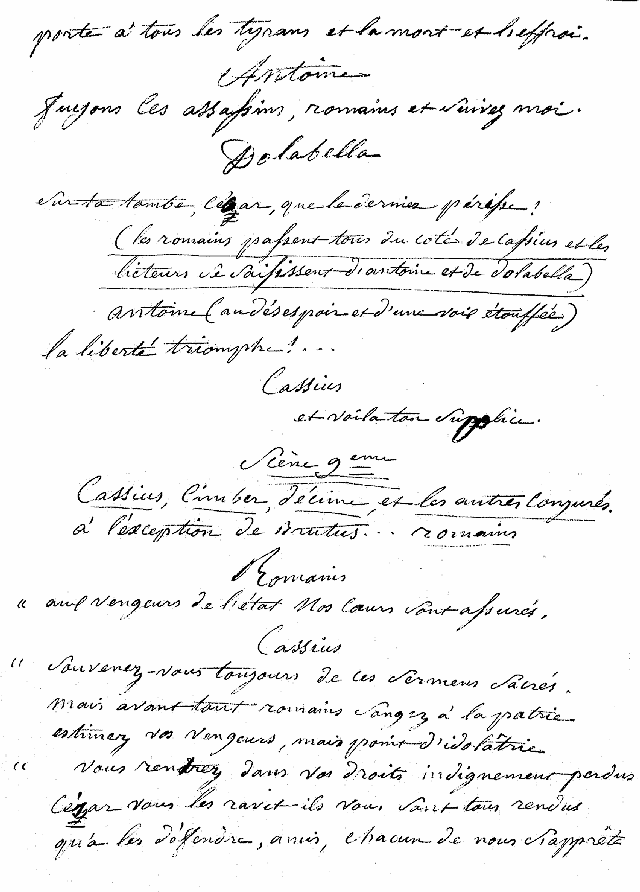 porte à tous les tyrans et la mort et l'effroi.
Antoine
fuyons les assassins, romains et suivez moi.
Dolabella
sur ta tombe, César, que le dernier périsse!
(les romains passent tous du coté de Cassius et les
licteurs se saisissent d'antoine et de dolabella)
antoine (au désespoir et d'une voix étouffée)
la liberté triomphe! ...
Cassius
et voila ton supplice.
Scène 9eme
Cassius, Cimber, décime, et les autres Conjurés.
à l'éxception de Brutus... romains
Romains
" aux vengeurs de l'état Nos Cœurs sont assurés.
Cassius
" Souvenez-vous toujours de ces sermens Sacrés.
Mais avant tout romains songez à la patrie
estimez vos vengeurs, mais point d'idolâtrie
" vous rentrez dans vos droits indignement perdus
César vous les ravit ils vous sont tous rendus
qu'à les défendre, amis, chacun de nous s'apprête